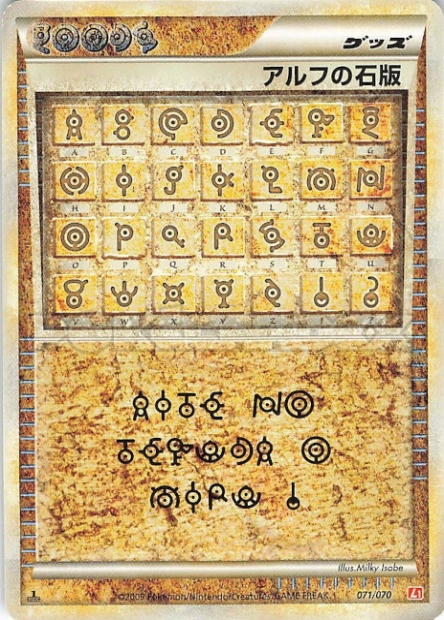 グッズ
アルフの石版
A B C D E F G
H I J K L M N
O P Q R S T U
V W X Y Z
AITE NO
TEFUDA O
MIRU !
Illus.Milky Isobe
1
©2009 Pokémon/Nintendo/Creatures/GAME FREAK.
071/070
L1